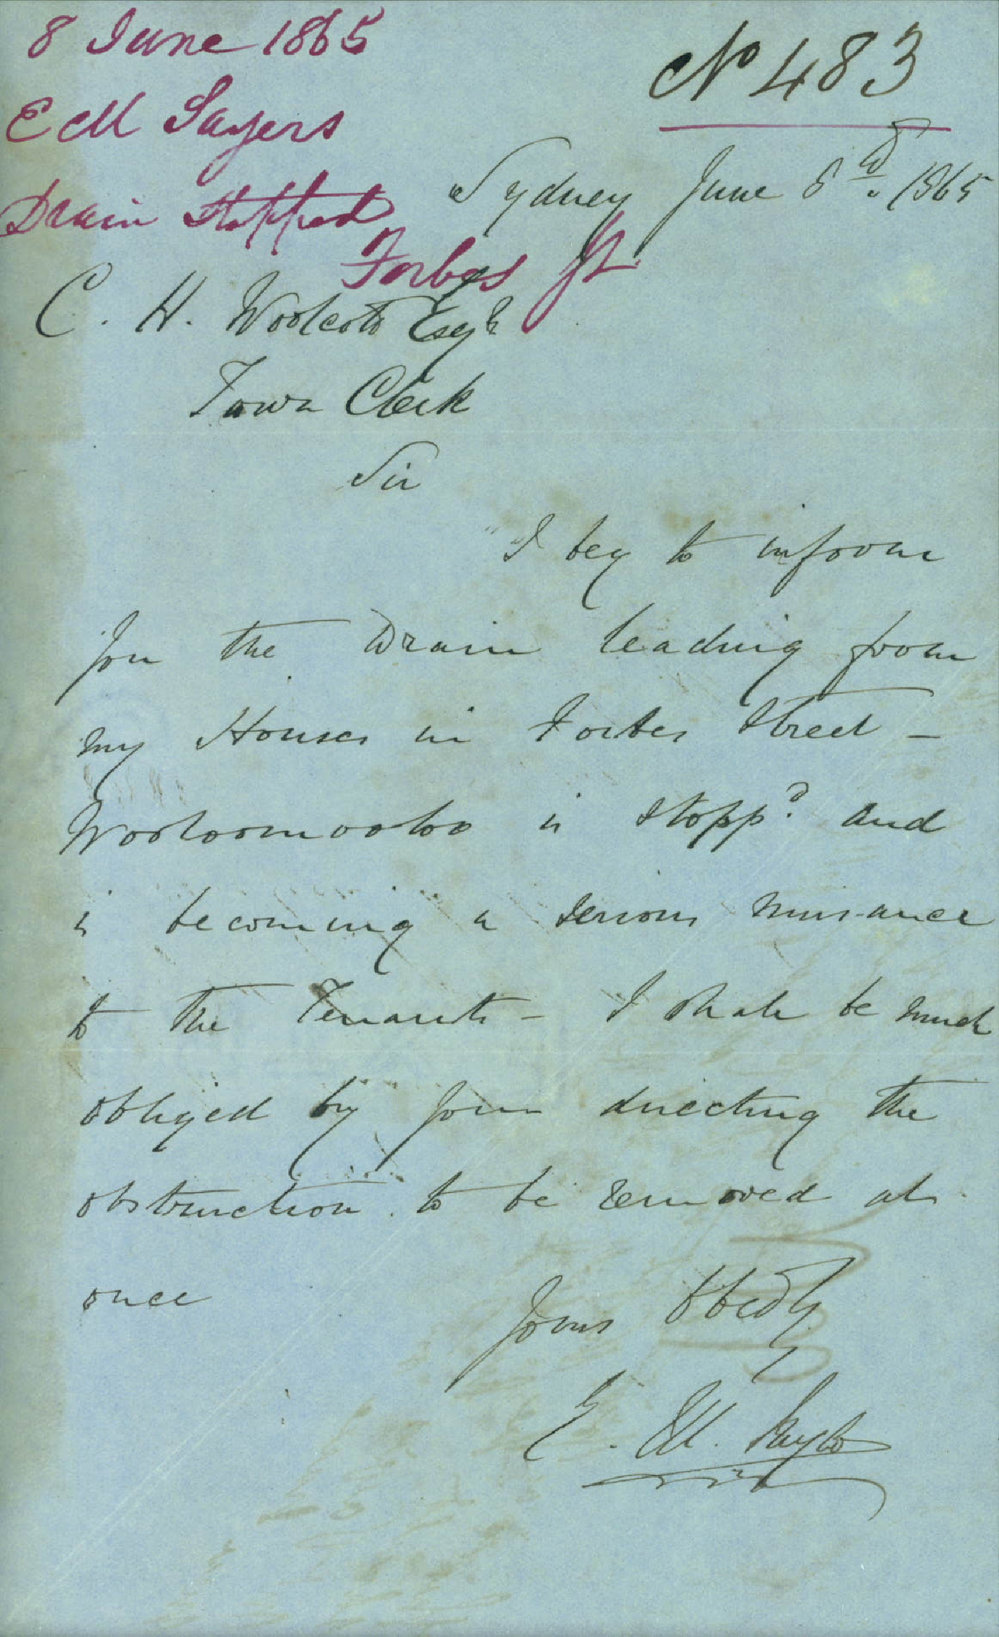 8 June 1865
No 483
E M Sayers
Sydney June 8th. 1865
Drain Stopped
Forbes St.
C. H. Woolcott Esqr
Town Clerk
Sir
I beg to inform
you the Drain leading from
my Houses in Forbes Street -
Wooloomooloo is stoppd. and
is becoming a serious nuisance
to the Tenants - I shall be much
obliged by your directing the
obstruction to be removed at
once
Yours Obedly
E. M. Sayers